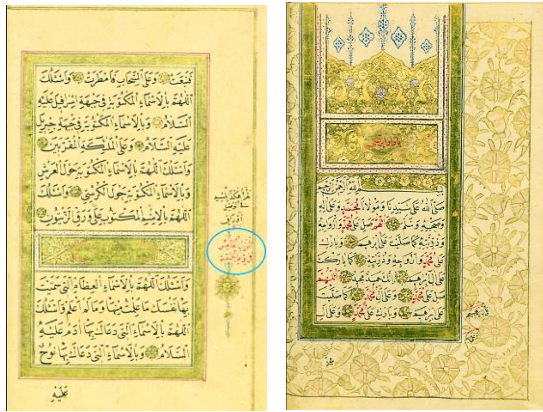 فَنَبَعَتْ وَعَلَى السَّحَابِ فَأَمْطَرَتْ وَأَسْئَلُكَ
اللّٰهُمَّ بِالْأَسْمَاءِ الْمَكْتُوبَةِ فِي جَبْهَةِ إِسْرَافِيلَ عَلَيْهِ
السَّلَامُ وَبِالْأَسْمَاءِ الْمَكْتُوبَةِ فِي جَبْهَةِ جِبْرِيلَ
عَلَيْهِ السَّلَامُ وَعَلَى الْمَلٰئِكَةِ الْمُقَرَّبِينَ
وَأَسْئَلُكَ اللّٰهُمَّ بِالْأَسْمَاءِ الْمَكْتُوبَةِ حَوْلَ الْعَرْشِ
وَبِالْأَسْمَاءِ الْمَكْتُوبَةِ حَوْلَ الْكُرْسِيِّ وَأَسْئَلُكَ
اللّٰهُمَّ بِالْاِسْمِ الْمَكْتُوبِ عَلَى وَرَقِ الزَّيْتُونِ
وَأَسْئَلُكَ اللّٰهُمَّ بِالْأَسْمَاءِ الْعِظَامِ الَّتِي سَمَّيْتَ
بِهَا نَفْسَكَ مَا عَلِمْتُ مِنْهَا وَمَا لَمْ أَعْلَمْ وَأَسْئَلُكَ
اللّٰهُمَّ بِالْأَسْمَاءِ الَّتِي دَعَاكَ بِهَا آدَمُ عَلَيْهِ
السَّلَامُ وَبِالْأَسْمَاءِ الَّتِي دَعَاكَ بِهَا نُوحٌ
عَلَيْهِ
بسم الله الرحمن الرحيم
صَلَّى اللهُ عَلَى سَيِّدِنَا وَمَوْلَانَا مُحَمَّدٍ وَعَلَى آلِهِ
وَصَحْبِهِ وَسَلَّمَ اللّٰهُمَّ صَلِّ عَلَى مُحَمَّدٍ وَأَزْوَاجِهِ
وَذُرِّيَّتِهِ كَمَا صَلَّيْتَ عَلَى إِبْرٰهِيمَ وَبَارِكْ
عَلَى مُحَمَّدٍ وَأَزْوَاجِهِ وَذُرِّيَّتِهِ كَمَا بَارَكْتَ
عَلَى إِبْرٰهِيمَ إِنَّكَ حَمِيدٌ مَجِيدٌ اللّٰهُمَّ
صَلِّ عَلَى مُحَمَّدٍ وَعَلَى آلِ مُحَمَّدٍ كَمَا صَلَّيْتَ
عَلَى إِبْرٰهِيمَ وَبَارِكْ عَلَى مُحَمَّدٍ وَعَلَى آلِ